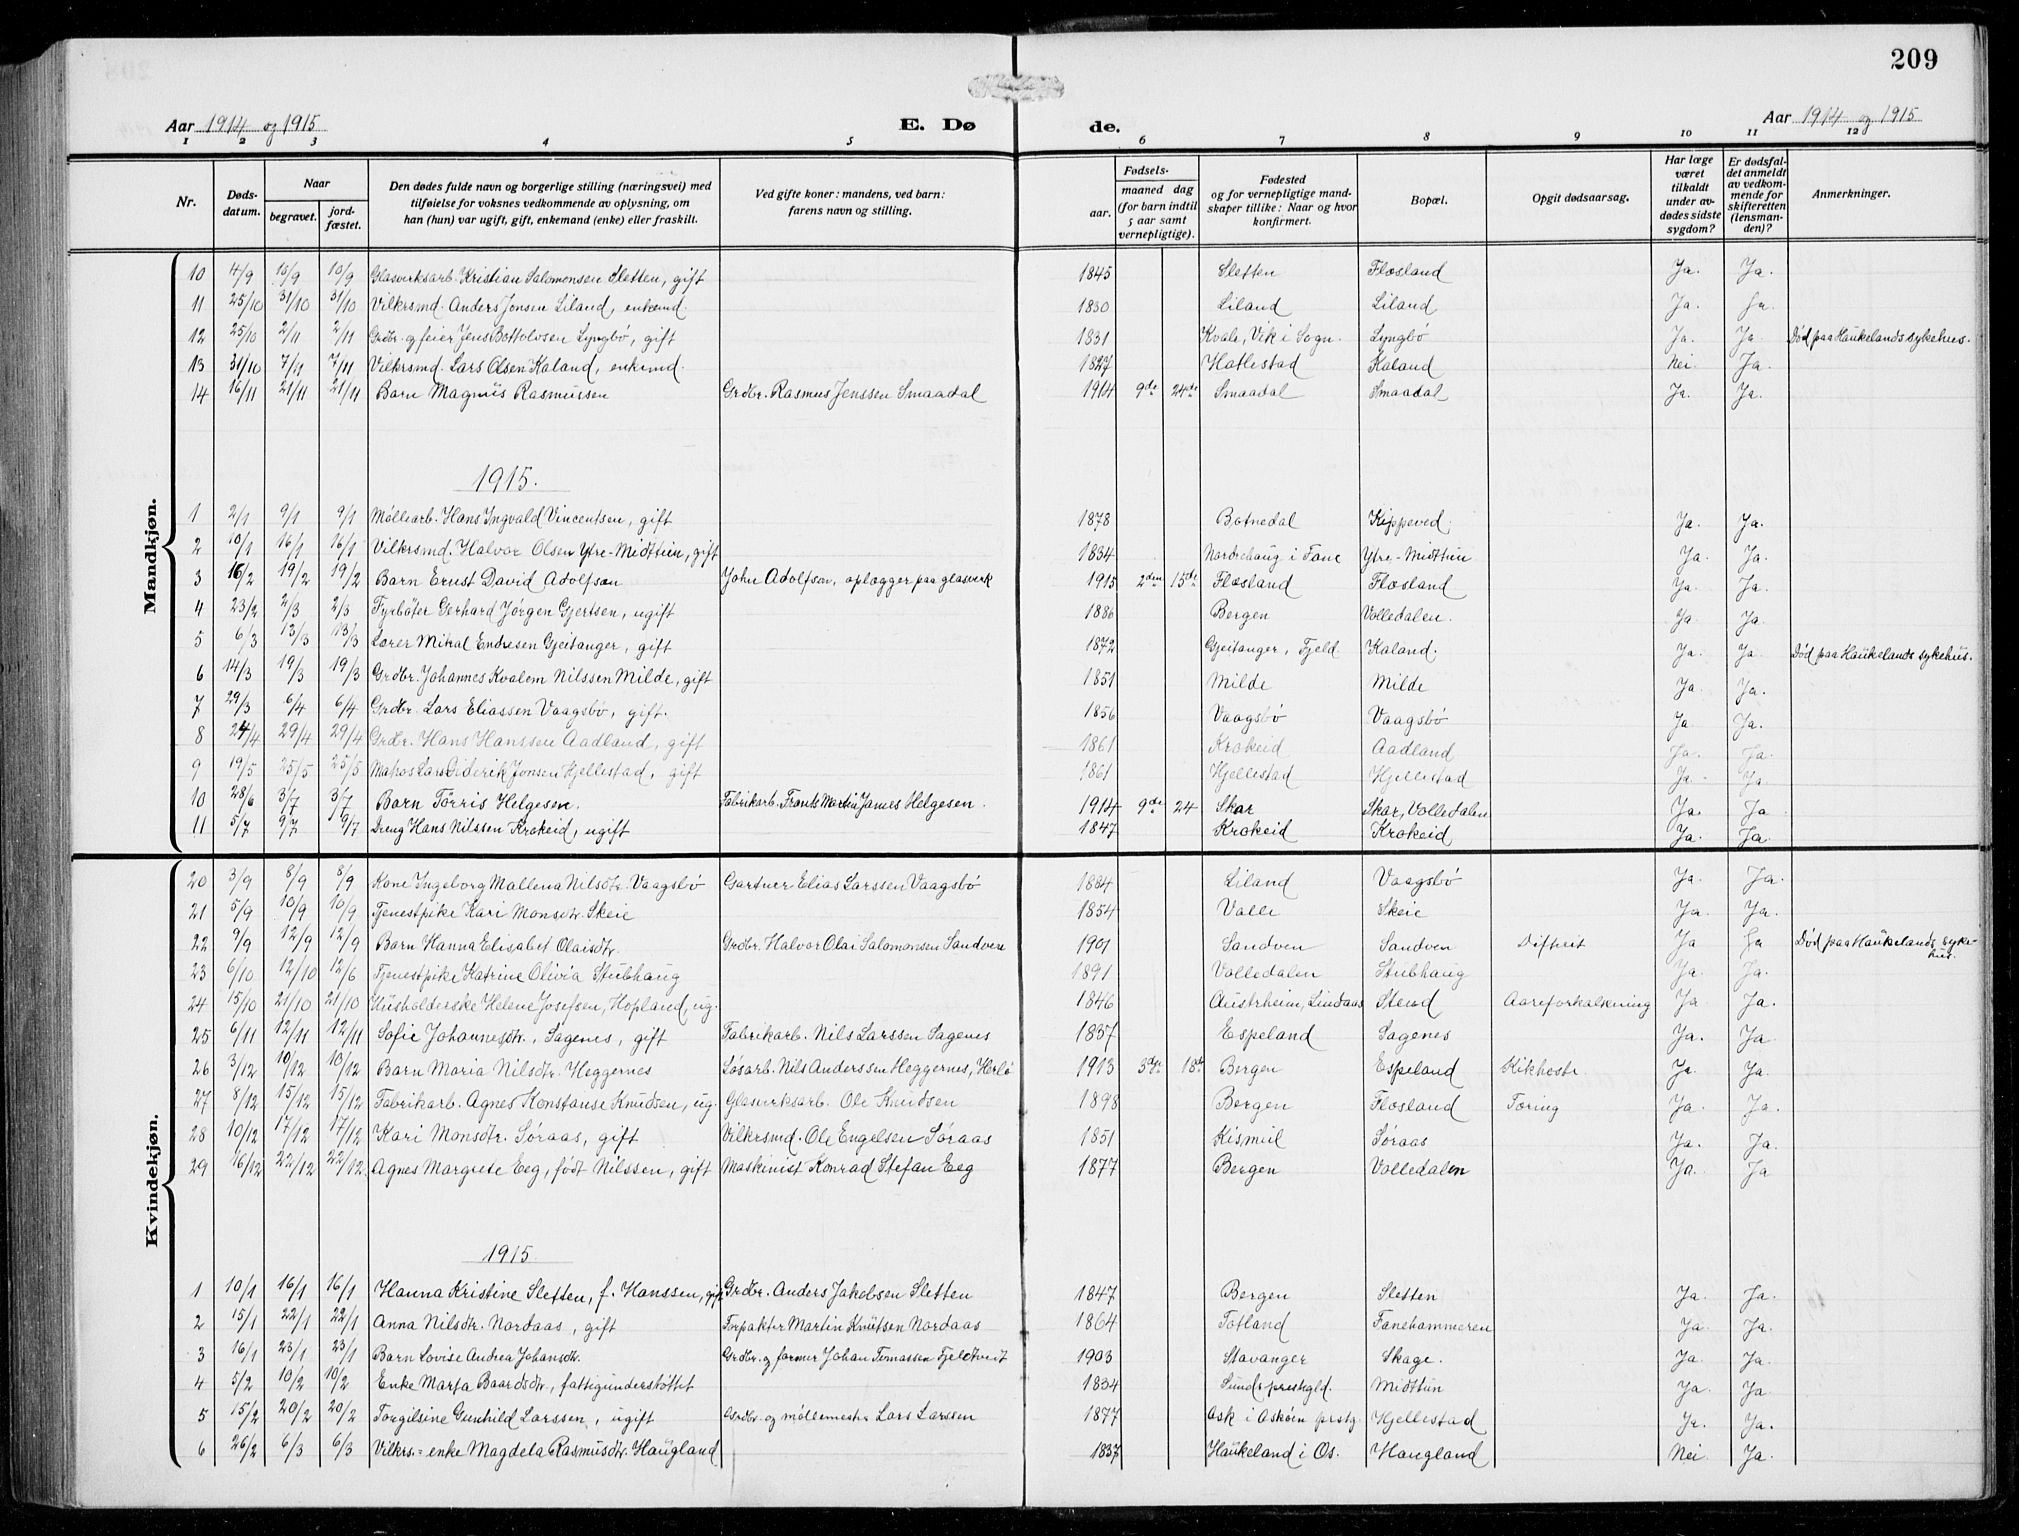 209
Aar 1914 og 1915 E. Dø de. Aar 1914 og 1915
1 2 3 4 5 6 7 8 9 10 11 12
Nr. Døds-datum. Naar begravet. jord-fæstet. Den dødes fulde navn og borgerlige stilling (næringsvei) med tilføielse for voksnes vedkommende av oplysning, om han (hun) var ugift, gift, enkemand (enke) eller fraskilt. Ved gifte koner: mandens, ved barn: farens navn og stilling. Fødsels- aar. maaned dag (for barn indtil 5 aar samt vernepligtige). Fødested og for vernepligtige mand-skaper tillike: Naar og hvor konfirmert. Bopæl. Opgit dødsaarsag. Har læge været tilkaldt under av-dødes sidste sygdom? Er dødsfal-det anmeldt av vedkom-mende for skifteretten (lensman-den)? Anmerkninger.
Mandkjøn.
10 4/9 10/9 10/9 Glasverksarb. Kristian Salomonsen Sletten, gift 1845 Sletten Flæsland Ja. Ja.
11 25/10 31/10 31/10 Vilkrsmd. Anders Jonsen Liland, enkemd. 1830 Liland Liland Ja. Ja.
12 25/10 2/11 2/11 Grdbr. og feier Jens Bottolvsen Lyngbø, gift 1831 Kvale, Vik i Sogn. Lyngbø Ja. Ja. Død paa Haukelands sykehus.
13 31/10 7/11 7/11 Vilkrsmd. Lars Olsen Kaland, enkemd. 1827 Hatlestad Kaland Nei. Ja.
14 16/11 21/11 21/11 Barn Magnus Rasmussen Grdbr. Rasmus Jenssen Smaadal 1914 9de 24de Smaadal Smaadal Ja. Ja.
1915.
1 2/1 9/1 9/1 Møllearb. Hans Ingvald Vincentsen, gift 1878 Botnedal Kippeved. Ja. Ja.
2 10/1 16/1 16/1 Vilkrsmd. Halvor Olsen Ytre-Midttun, gift 1834 Nordrehaug i Fane Ytre-Midttun Ja. Ja.
3 16/2 19/2 19/2 Barn Ernst David Adolfsen John Adolfsen, oplægger paa glasverk 1915 2den 15de Flæsland Flæsland Ja. Ja.
4 23/2 2/3 2/3 Fyrbøter Gerhard Jørgen Gjertsen, ugift 1886 Bergen Volledalen. Ja Ja.
5 6/3 13/3 13/3 Lærer Mikal Endresen Gjeitanger, gift 1872 Gjeitanger, Fjeld Kaland. Ja. Ja Død paa Haukelands sykehus.
6 14/3 19/3 19/3 Grdbr. Johannes Kvalem Nilssen Milde, gift 1851 Milde Milde Ja. Ja.
7 29/3 6/4 6/4 Grdbr. Lars Eliassen Vaagsbø, gift. 1856 Vaagsbø Vaagsbø Ja. Ja.
8 24/4 29/4 29/4 Grdbr. Hans Hanssen Aadland, gift 1861 Krokeid Aadland Ja. Ja.
9 19/5 25/5 25/5 Matros Lars Diderik Jonsen Hjellestad, gift 1861 Hjellestad Hjellestad Ja. Ja
10 28/6 3/7 3/7 Barn Tørris Helgesen. Fabrikarb. Frants Martin James Helgesen. 1914 9de 24 Skar Skar, Volledalen Ja. Ja
11 5/7 9/7 9/7 Dreng Hans Nilssen Krokeid, ugift 1847 Krokeid Krokeid Ja. Ja.
Kvindekjøn.
20 3/9 8/9 8/9 Kone Ingeborg Mallena Nilsdtr. Vaagsbø Gartner Elias Larssen Vaagsbø 1884 Liland Vaagsbø Ja. Ja.
21 5/9 10/9 10/9 Tjenestpike Kari Monsdtr. Skeie 1854 Valle Skeie Ja. Ja.
22 9/9 12/9 12/9 Barn Hanna Elisabet Olaisdtr. Grdbr. Halvor Olai Salomonsen Sandven 1901 Sandven Sandven Difterit Ja Ja Død paa Haukelands syke-hus.
23 6/10 12/10 12/6 Tjenestpike Katrine Olivia Stubhaug 1891 Volledalen Stubhaug Ja. Ja.
24 15/10 21/10 21/10 Husholderske Helene Josefsen, Hopland, ug. 1846 Austrheim, Lindaas Stend Aareforkalkning Ja. Ja.
25 6/11 12/11 12/11 Sofie Johannesdtr., Sagenes, gift Fabrikarb. Nils Larssen Sagenes 1837 Espeland Sagenes Ja. Ja
26 3/12 10/12 10/12 Barn Maria Nilsdtr. Heggernes Løsarb. Nils Anderssen Heggernes, Herlø 1913 3dje 18de Bergen Espeland Kikhoste. Ja. Ja.
27 8/12 15/12 15/12 Fabrikarb. Agnes Konstanse Knudsen, ug. Glasverksarb. Ole Knudsen 1898 Bergen Flæsland Tæring Ja. Ja.
28 10/12 17/12 17/12 Kari Monsdtr. Søraas, gift Vilkrsmd. Ole Engelsen Søraas 1851 Kismul Søraas Ja. Ja.
29 16/12 22/12 22/12 Agnes Margrete Eeg, født Nilssen, gift Maskinist Konrad Stefan Eeg 1877 Bergen Volledalen Ja. Ja
1915.
1 10/1 16/1 16/1 Hanna Kristine Sletten, f. Hanssen, gift Grdbr. Anders Jakobsen Sletten 1847 Bergen Sletten Ja. Ja.
2 15/1 22/1 22/1 Anna Nilsdtr. Nordaas, gift Forpakter Martin Knutsen Nordaas 1864 Totland Fanehammeren Ja. Ja.
3 16/1 23/1 23/1 Barn Lovise Andrea Johansdtr. Grdbr. og former Johan Tomassen Fjeldtveit 1903 Stavanger Skage. Ja. Ja.
4 5/2 10/2 10/2 Enke Marta Baardsdtr., fattigunderstøttet 1834 Sunds prestgld. Midttun Ja. Ja.
5 15/2 20/2 20/2 Torgilsine Gunhild Larssen, ugift Grdbr. og møllemester Lars Larssen 1877 Ask i Askøen prstg. Hjellestad Ja. Ja.
6 26/2 6/3 6/3 Vilkrs.-enke Magdela Rasmusdtr. Haugland 1837 Haukeland i Os. Haugland Nei Ja.